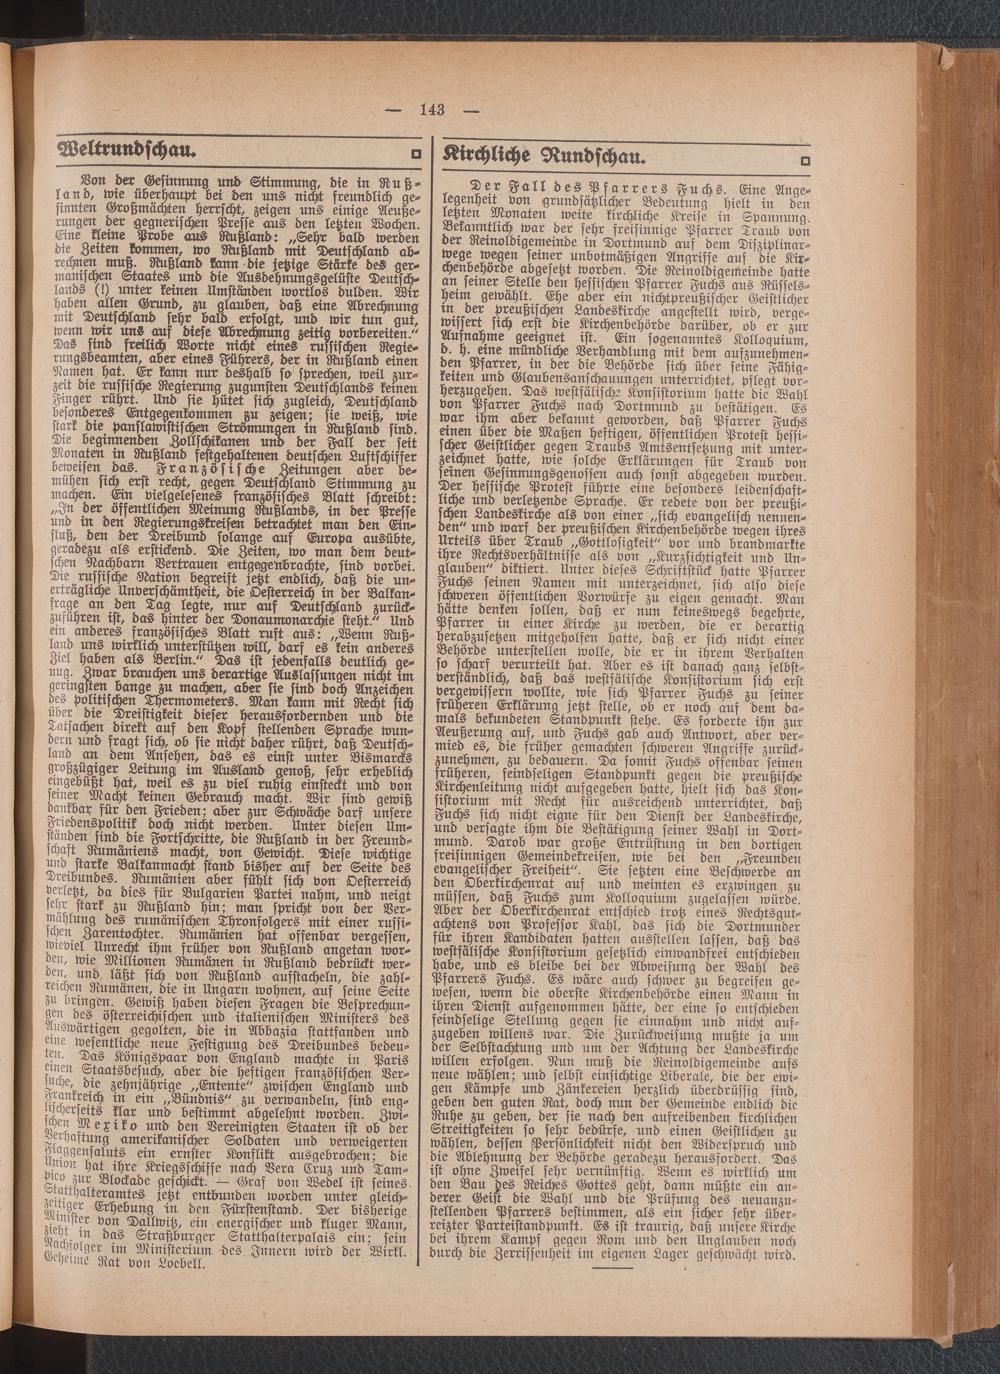 — 143 —
Weltrundschau.
Von der Gesinnung und Stimmung, die in Ruß-
land, wie überhaupt bei den uns nicht freundlich ge-
sinnten Großmächten herrscht, zeigen uns einige Aeuße-
rungen der gegnerischen Presse aus den letzten Wochen.
Eine kleine Probe aus Rußland: „Sehr bald werden
die Zeiten kommen, wo Rußland mit Deutschland ab-
rechnen muß. Rußland kann die jetzige Stärke des ger-
manischen Staates und die Ausdehnungsgelüste Deutsch-
lands (!) unter keinen Umständen wortlos dulden. Wir
haben allen Grund, zu glauben, daß eine Abrechnung
mit Deutschland sehr bald erfolgt, und wir tun gut,
wenn wir uns auf diese Abrechnung zeitig vorbereiten.“
Das sind freilich Worte nicht eines russischen Regie-
rungsbeamten, aber eines Führers, der in Rußland einen
Namen hat. Er kann nur deshalb so sprechen, weil zur-
zeit die russische Regierung zugunsten Deutschlands keinen
Finger rührt. Und sie hütet sich zugleich, Deutschland
besonderes Entgegenkommen zu zeigen; sie weiß, wie
stark die panslawistischen Strömungen in Rußland sind.
Die beginnenden Zollschikanen und der Fall der seit
Monaten in Rußland festgehaltenen deutschen Luftschiffer
beweisen das. Französische Zeitungen aber be-
mühen sich erst recht, gegen Deutschland Stimmung zu
machen. Ein vielgelesenes französisches Blatt schreibt:
„In der öffentlichen Meinung Rußlands, in der Presse
und in den Regierungskreisen betrachtet man den Ein-
fluß, den der Dreibund solange auf Europa ausübte,
geradezu als erstickend. Die Zeiten, wo man dem deut-
schen Nachbarn Vertrauen entgegenbrachte, sind vorbei.
Die russische Nation begreift jetzt endlich, daß die un-
erträgliche Unverschämtheit, die Oesterreich in der Balkan-
frage an den Tag legte, nur auf Deutschland zurück-
zuführen ist, das hinter der Donaumonarchie steht.“ Und
ein anderes französisches Blatt ruft aus: „Wenn Ruß-
land uns wirklich unterstützen will, darf es kein anderes
Ziel haben als Berlin.“ Das ist jedenfalls deutlich ge-
nug. Zwar brauchen uns derartige Auslassungen nicht im
geringsten bange zu machen, aber sie sind doch Anzeichen
des politischen Thermometers. Man kann mit Recht sich
über die Dreistigkeit dieser herausfordernden und die
Tatsachen direkt auf den Kopf stellenden Sprache wun-
dern und fragt sich, ob sie nicht daher rührt, daß Deutsch-
land an dem Ansehen, das es einst unter Bismarcks
großzügiger Leitung im Ausland genoß, sehr erheblich
eingebüßt hat, weil es zu viel ruhig einsteckt und von
seiner Macht keinen Gebrauch macht. Wir sind gewiß
dankbar für den Frieden; aber zur Schwäche darf unsere
Friedenspolitik doch nicht werden. Unter diesen Um-
ständen sind die Fortschritte, die Rußland in der Freund-
schaft Rumäniens macht, von Gewicht. Diese wichtige
und starke Balkanmacht stand bisher auf der Seite des
Dreibundes. Rumänien aber fühlt sich von Oesterreich
verletzt, da dies für Bulgarien Partei nahm, und neigt
sehr stark zu Rußland hin; man spricht von der Ver-
mählung des rumänischen Thronfolgers mit einer russi-
schen Zarentochter. Rumänien hat offenbar vergessen,
wieviel Unrecht ihm früher von Rußland angetan wor-
den, wie Millionen Rumänen in Rußland bedrückt wer-
den, und läßt sich von Rußland aufstacheln, die zahl-
reichen Rumänen, die in Ungarn wohnen, auf seine Seite
zu bringen. Gewiß haben diesen Fragen die Besprechun-
gen des österreichischen und italienischen Ministers des
Auswärtigen gegolten, die in Abbazia stattfanden und
eine wesentliche neue Festigung des Dreibundes bedeu-
ten. Das Königspaar von England machte in Paris
einen Staatsbesuch, aber die heftigen französischen Ver-
suche, die zehnjährige „Entente“ zwischen England und
Frankreich in ein „Bündnis“ zu verwandeln, sind eng-
lischerseits klar und bestimmt abgelehnt worden. Zwi-
schen Mexiko und den Vereinigten Staaten ist ob der
Verhaftung amerikanischer Soldaten und verweigerten
Flaggensaluts ein ernster Konflikt ausgebrochen; die
Union hat ihre Kriegsschiffe nach Vera Cruz und Tam-
pico zur Blockade geschickt. — Graf von Wedel ist seines
Statthalteramtes jetzt entbunden worden unter gleich-
zeitiger Erhebung in den Fürstenstand. Der bisherige
Minister von Dallwitz, ein energischer und kluger Mann,
zieht in das Straßburger Statthalterpalais ein; sein
Nachfolger im Ministerium des Innern wird der Wirkl.
Geheime Rat von Loebell.
Kirchliche Rundschau.
Der Fall des Pfarrers Fuchs. Eine Ange-
legenheit von grundsätzlicher Bedeutung hielt in den
letzten Monaten weite kirchliche Kreise in Spannung.
Bekanntlich war der sehr freisinnige Pfarrer Traub von
der Reinoldigemeinde in Dortmund auf dem Disziplinar-
wege wegen seiner unbotmäßigen Angriffe auf die Kir-
chenbehörde abgesetzt worden. Die Reinoldigemeinde hatte
an seiner Stelle den hessischen Pfarrer Fuchs aus Rüssels-
heim gewählt. Ehe aber ein nichtpreußischer Geistlicher
in der preußischen Landeskirche angestellt wird, verge-
wissert sich erst die Kirchenbehörde darüber, ob er zur
Aufnahme geeignet ist. Ein sogenanntes Kolloquium,
d. h. eine mündliche Verhandlung mit dem aufzunehmen-
den Pfarrer, in der die Behörde sich über seine Fähig-
keiten und Glaubensanschauungen unterrichtet, pflegt vor-
herzugehen. Das westfälische Konsistorium hatte die Wahl
von Pfarrer Fuchs nach Dortmund zu bestätigen. Es
war ihm aber bekannt geworden, daß Pfarrer Fuchs
einen über die Maßen heftigen, öffentlichen Protest hessi-
scher Geistlicher gegen Traubs Amtsentsetzung mit unter-
zeichnet hatte, wie solche Erklärungen für Traub von
seinen Gesinnungsgenossen auch sonst abgegeben wurden.
Der hessische Protest führte eine besonders leidenschaft-
liche und verletzende Sprache. Er redete von der preußi-
schen Landeskirche als von einer „sich evangelisch nennen-
den“ und warf der preußischen Kirchenbehörde wegen ihres
Urteils über Traub „Gottlosigkeit“ vor und brandmarkte
ihre Rechtsverhältnisse als von „Kurzsichtigkeit und Un-
glauben“ diktiert. Unter dieses Schriftstück hatte Pfarrer
Fuchs seinen Namen mit unterzeichnet, sich also diese
schweren öffentlichen Vorwürfe zu eigen gemacht. Man
hätte denken sollen, daß er nun keineswegs begehrte,
Pfarrer in einer Kirche zu werden, die er derartig
herabzusetzen mitgeholfen hatte, daß er sich nicht einer
Behörde unterstellen wolle, die er in ihrem Verhalten
so scharf verurteilt hat. Aber es ist danach ganz selbst-
verständlich, daß das westfälische Konsistorium sich erst
vergewissern wollte, wie sich Pfarrer Fuchs zu seiner
früheren Erklärung jetzt stelle, ob er noch auf dem da-
mals bekundeten Standpunkt stehe. Es forderte ihn zur
Aeußerung auf, und Fuchs gab auch Antwort, aber ver-
mied es, die früher gemachten schweren Angriffe zurück-
zunehmen, zu bedauern. Da somit Fuchs offenbar seinen
früheren, feindseligen Standpunkt gegen die preußische
Kirchenleitung nicht aufgegeben hatte, hielt sich das Kon-
sistorium mit Recht für ausreichend unterrichtet, daß
Fuchs sich nicht eigne für den Dienst der Landeskirche,
und versagte ihm die Bestätigung seiner Wahl in Dort-
mund. Darob war große Entrüstung in den dortigen
freisinnigen Gemeindekreisen, wie bei den „Freunden
evangelischer Freiheit“. Sie setzten eine Beschwerde an
den Oberkirchenrat auf und meinten es erzwingen zu
müssen, daß Fuchs zum Kolloquium zugelassen würde.
Aber der Oberkirchenrat entschied trotz eines Rechtsgut-
achtens von Professor Kahl, das sich die Dortmunder
für ihren Kandidaten hatten ausstellen lassen, daß das
westfälische Konsistorium gesetzlich einwandfrei entschieden
habe, und es bleibe bei der Abweisung der Wahl des
Pfarrers Fuchs. Es wäre auch schwer zu begreifen ge-
wesen, wenn die oberste Kirchenbehörde einen Mann in
ihren Dienst aufgenommen hätte, der eine so entschieden
feindselige Stellung gegen sie einnahm und nicht auf-
zugeben willens war. Die Zurückweisung mußte ja um
der Selbstachtung und um der Achtung der Landeskirche
willen erfolgen. Nun muß die Reinoldigemeinde aufs
neue wählen; und selbst einsichtige Liberale, die der ewi-
gen Kämpfe und Zänkereien herzlich überdrüssig sind,
geben den guten Rat, doch nun der Gemeinde endlich die
Ruhe zu geben, der sie nach den aufreibenden kirchlichen
Streitigkeiten so sehr bedürfe, und einen Geistlichen zu
wählen, dessen Persönlichkeit nicht den Widerspruch und
die Ablehnung der Behörde geradezu herausfordert. Das
ist ohne Zweifel sehr vernünftig. Wenn es wirklich um
den Bau des Reiches Gottes geht, dann müßte ein an-
derer Geist die Wahl und die Prüfung des neuanzu-
stellenden Pfarrers bestimmen, als ein sicher sehr über-
reizter Parteistandpunkt. Es ist traurig, daß unsere Kirche
bei ihrem Kampf gegen Rom und den Unglauben noch
durch die Zerrissenheit im eigenen Lager geschwächt wird.